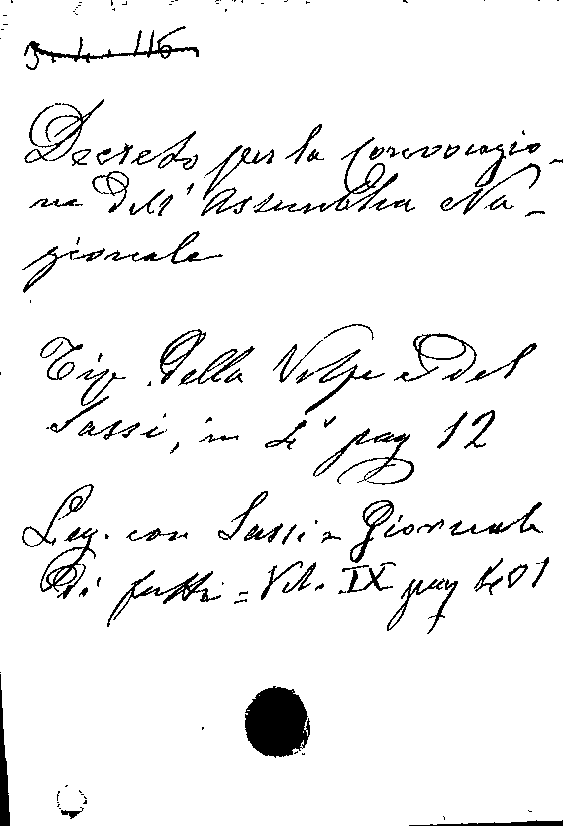 Decreto per la Convocazio-
ne Dell' Assemblea Na-
zionale
Tip. Della Volpe e Del
Sassi, in 4° pag 12
Leg. con Sassi = Giornale
Di fatti = Vol. IX pag